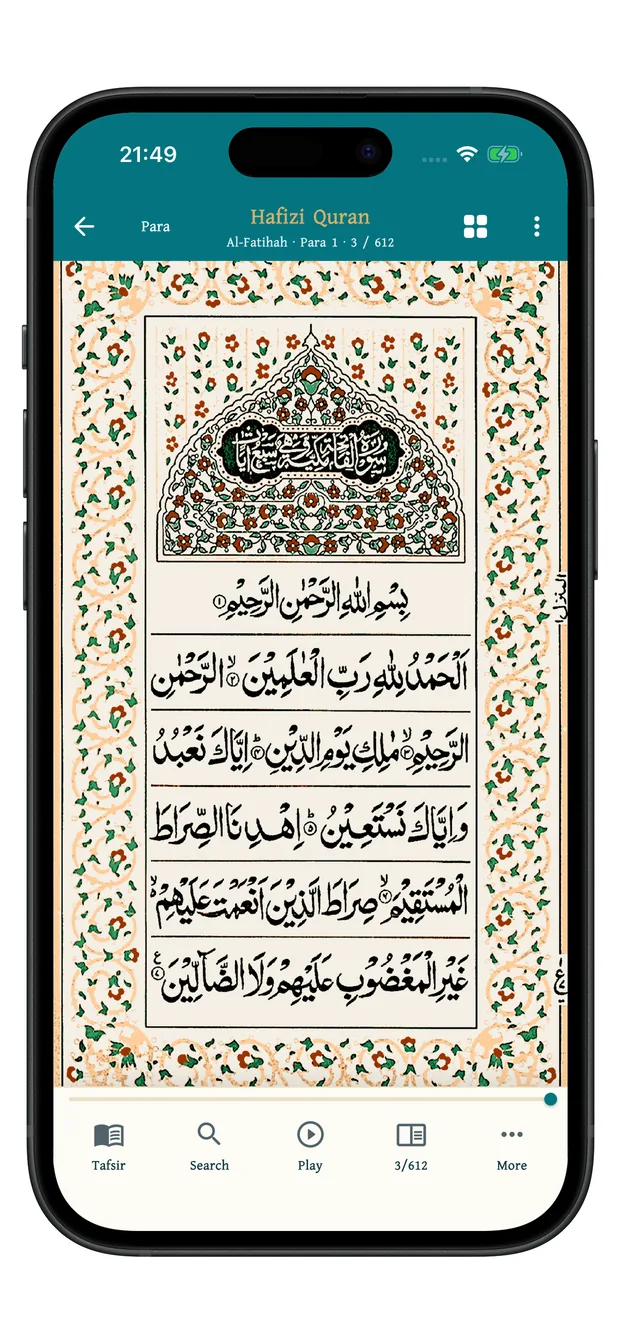 21:49
Para
Hafizi Quran
Al-Fatihah · Para 1 · 3 / 612
سورة الفاتحة مكية وهي سبع آيات
بِسْمِ اللهِ الرَّحْمٰنِ الرَّحِيْمِ ۝۱
اَلْحَمْدُ لِلّٰهِ رَبِّ الْعٰلَمِيْنَ ۝۲ۙ الرَّحْمٰنِ
الرَّحِيْمِ ۝۳ۙ مٰلِكِ يَوْمِ الدِّيْنِ ۝۴ؕ اِيَّاكَ نَعْبُدُ
وَاِيَّاكَ نَسْتَعِيْنُ ۝۵ؕ اِهْدِنَا الصِّرَاطَ
الْمُسْتَقِيْمَ ۝ۙ صِرَاطَ الَّذِيْنَ اَنْعَمْتَ عَلَيْهِمْ ۙ
غَيْرِ الْمَغْضُوْبِ عَلَيْهِمْ وَلَا الضَّآلِّيْنَ ۝۷
المنزل ۱
Tafsir
Search
Play
3/612
More